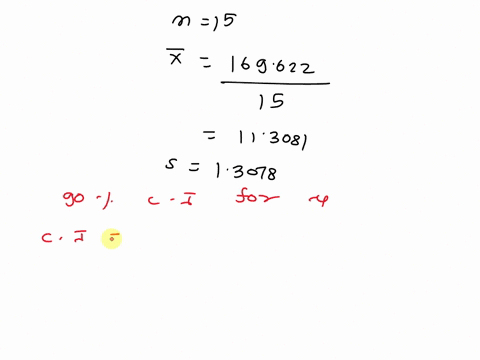 n = 15
x̄ = 169.622
15
= 11.3081
s = 1.3078
90 % C.I for μ
C.I =